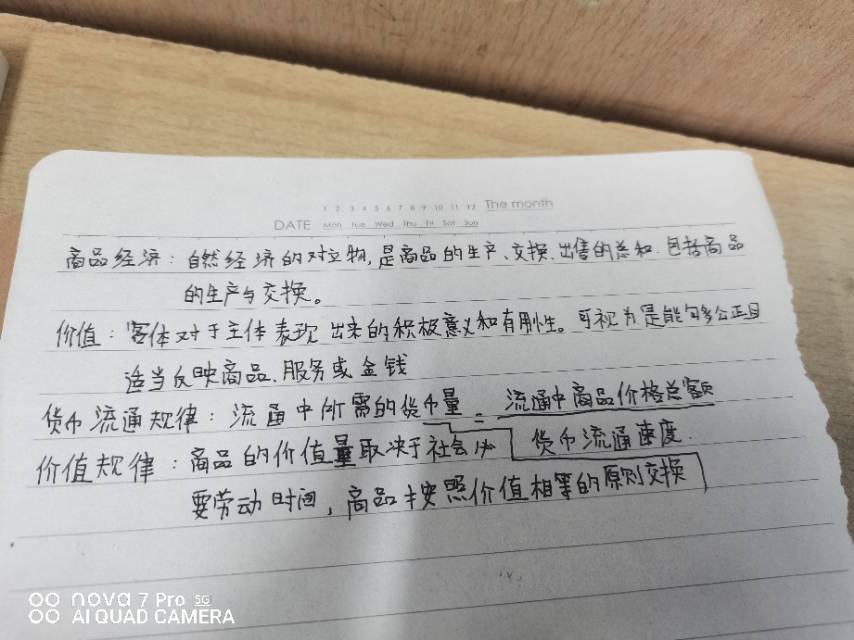 1 2 3 4 5 6 7 8 9 10 11 12 The month
DATE Mon Tue Wed Thu Fri Sat Sun
商品经济：自然经济的对立物,是商品的生产、交换、出售的总和.包括商品
的生产与交换。
价值：客体对于主体表现出来的积极意义和有用性。可视为是能够公正且
适当反映商品、服务或金钱
货币流通规律：流通中所需的货币量=流通中商品价格总额
货币流通速度.
价值规律：商品的价值量取决于社会必
要劳动时间，商品按照价值相等的原则交换
nova 7 Pro 5G
AI QUAD CAMERA